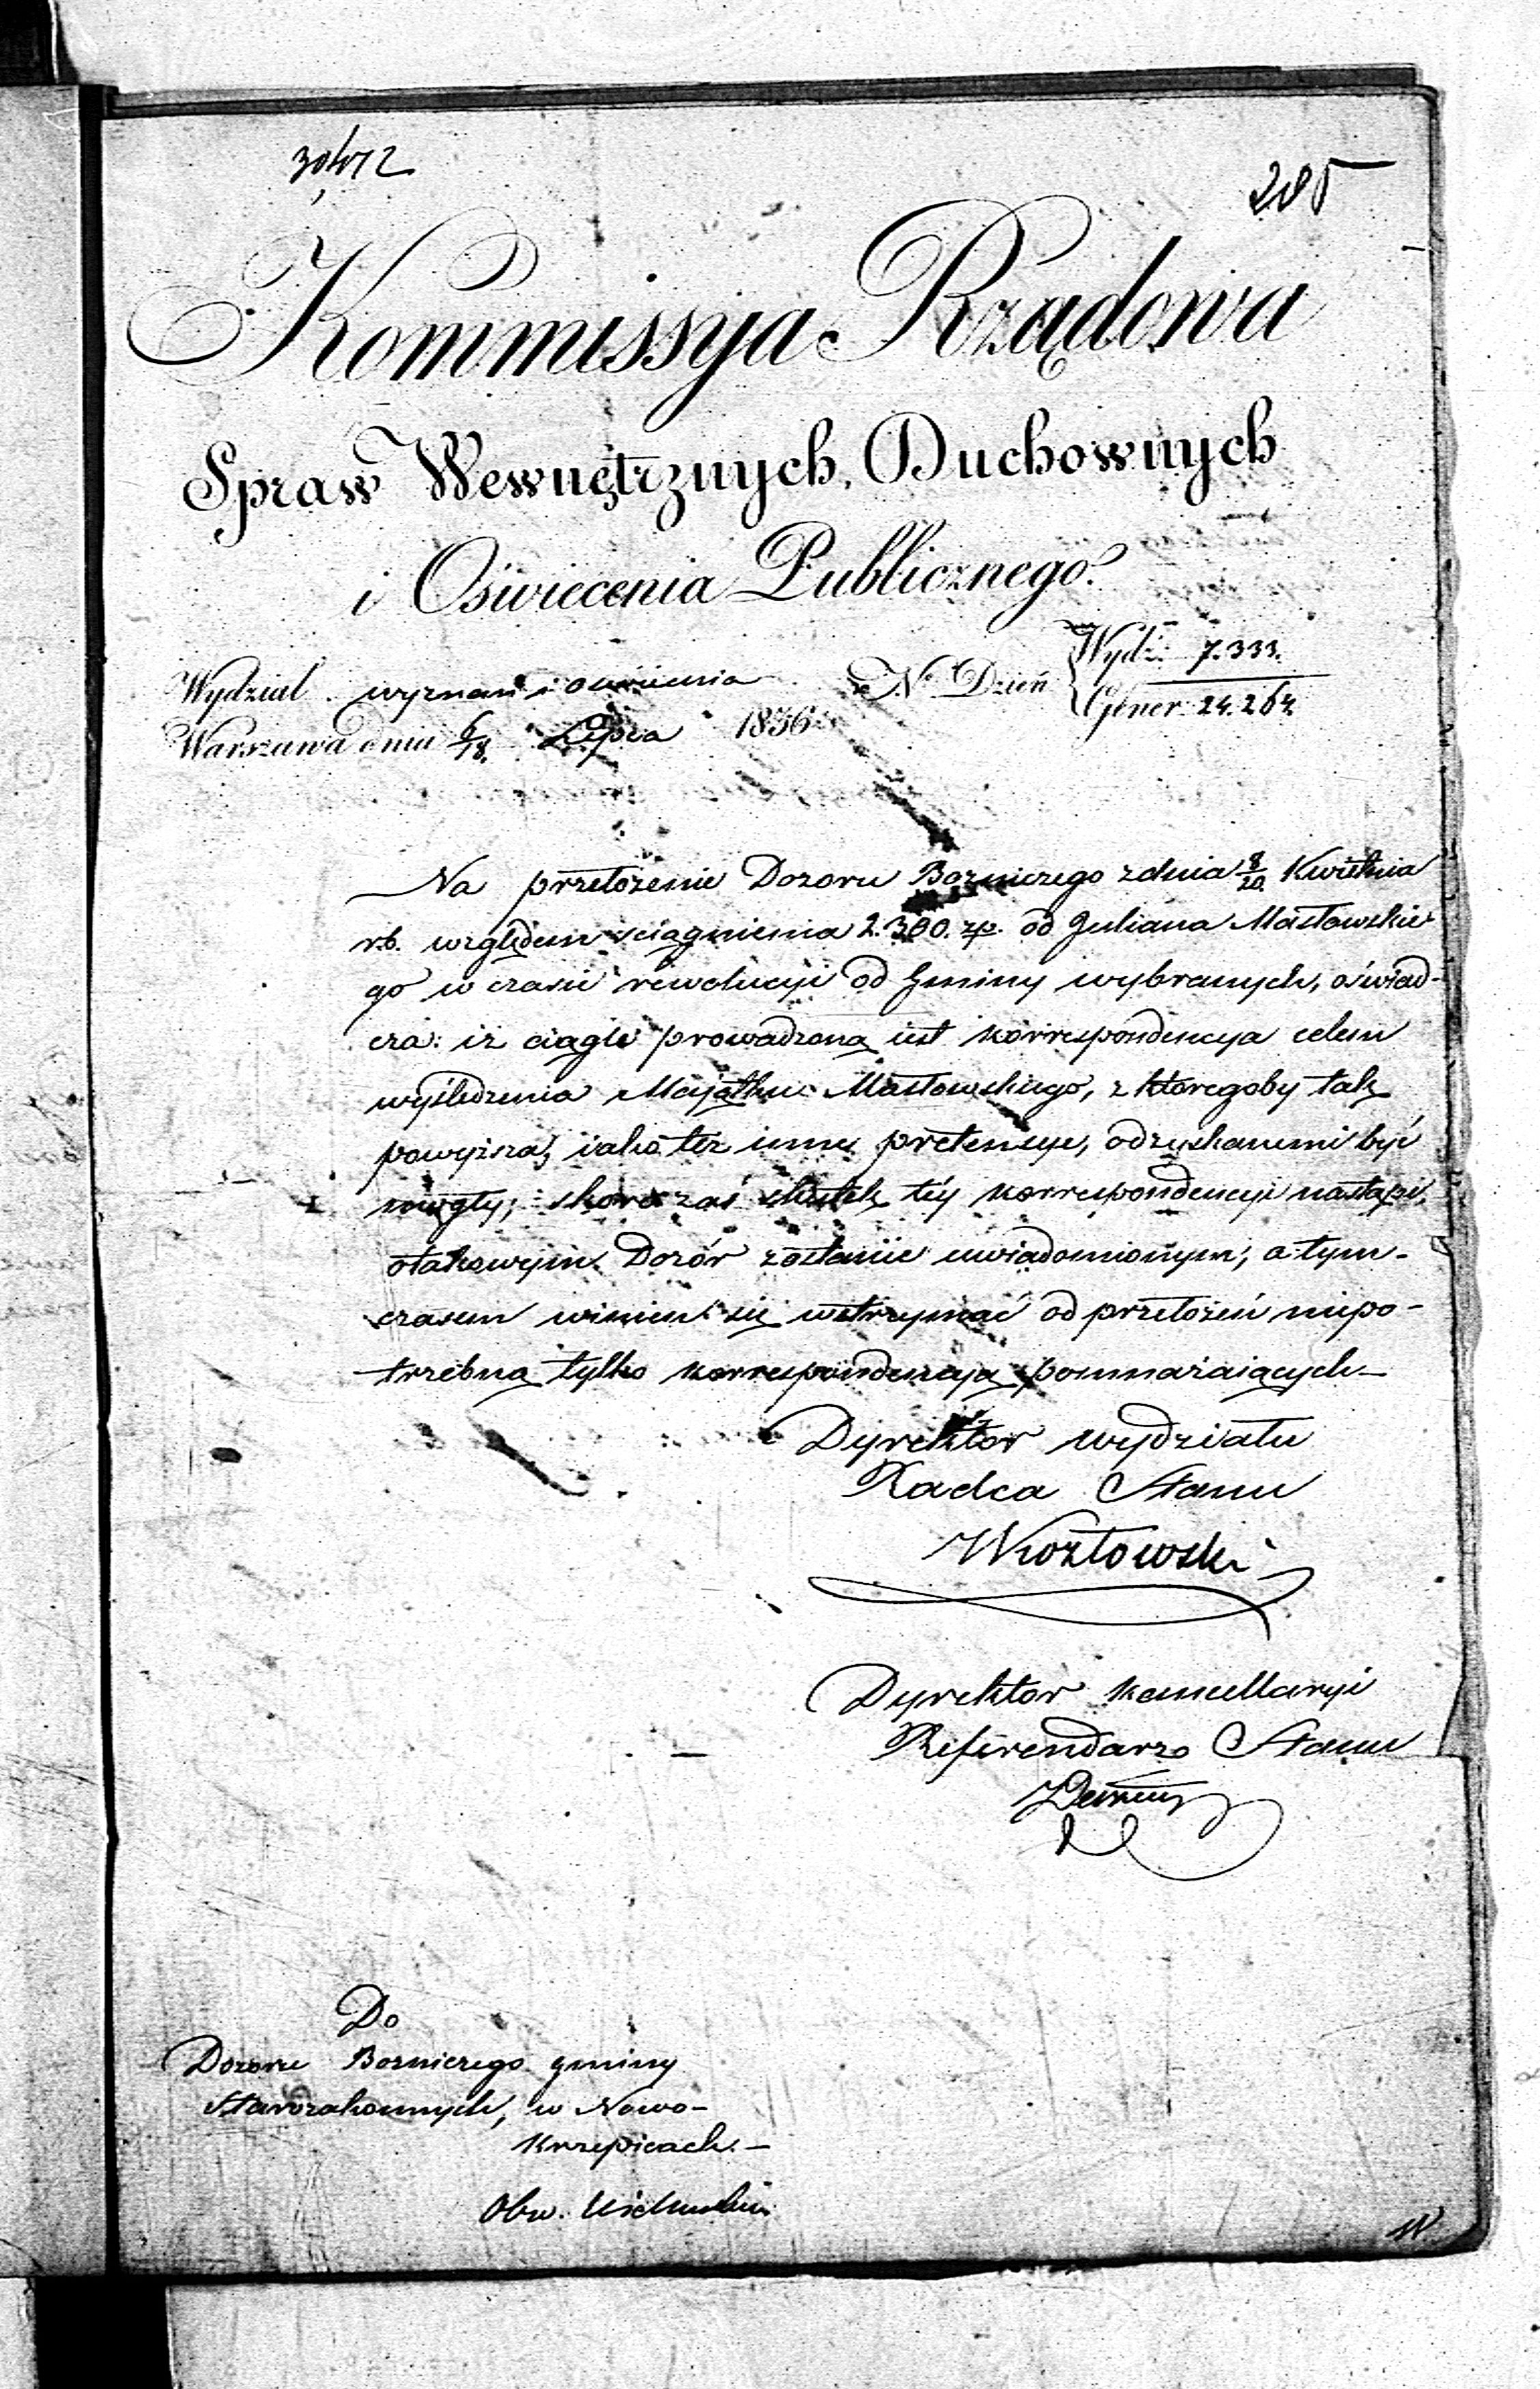 285
Kommissya Rządowa
Spraw Wewnętrznych, Duchownych
i Oświecenia Publicznego.
Wydział wyznań i oświecenia N.º Dzień Wydz: 7.333.
Gener: 24.264.
Warszawa dnia 6/18. Lipca 1836
Na przełożenie Dozoru Bożniczego z dnia 8/20. Kwietnia
r.b. względem ściągnienia 2.300. zp. od Juliana Masłowskie-
go w czasie rewolucyi od Gminy wybranych, oświad-
cza: iż ciągle prowadzoną iest korrespondencya celem
wyśledzenia Majątku Masłowskiego, z któregoby tak
powyższa, iako też inne pretensye, odzyskanemi być
mogły; skoro zaś skutek téy korrespondencyi nastąpi,
o takowym Dozór zostanie uwiadomionym; a tym-
czasem winien się wstrzymać od przełożeń niepo-
trzebną tylko korrespondencyą pomnażaiących
Dyrektor wydziału
Radca Stanu
Kozłowski
Dyrektor kancellaryi
Referendarz Stanu
Do
Dozoru Bożniczego gminy
Starozakonnych, w Nowo-
Krzepicach.
Obw. Wieluński